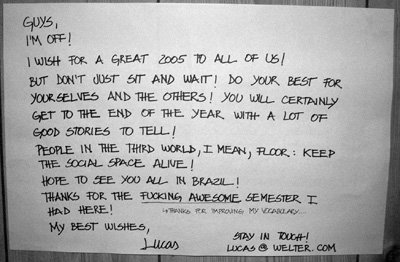 GUYS,
I'M OFF!
I WISH FOR A GREAT 2005 TO ALL OF US!
BUT DON'T JUST SIT AND WAIT! DO YOUR BEST FOR
YOURSELVES AND THE OTHERS! YOU WILL CERTAINLY
GET TO THE END OF THE YEAR WITH A LOT OF
GOOD STORIES TO TELL!
PEOPLE IN THE THIRD WORLD, I MEAN, FLOOR: KEEP
THE SOCIAL SPACE ALIVE!
HOPE TO SEE YOU ALL IN BRAZIL!
THANKS FOR THE FUCKING AWESOME SEMESTER I
HAD HERE! ↳THANKS FOR IMPROVING MY VOCABULARY...
MY BEST WISHES,
LUCAS
STAY IN TOUCH!
LUCAS@WELTER.COM